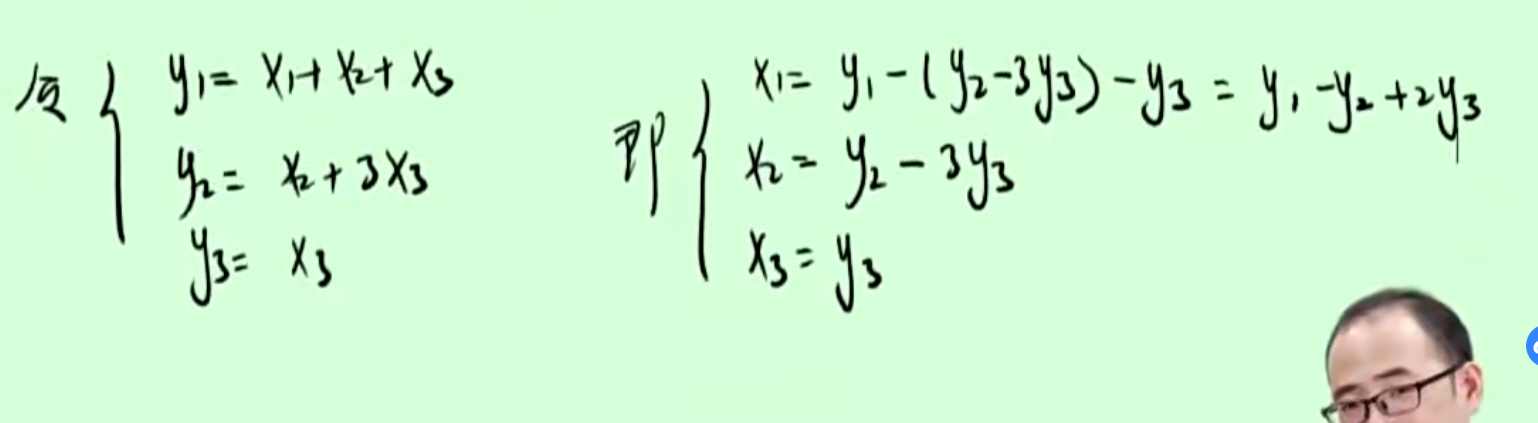 反 { y₁ = x₁ + x₂ + x₃
y₂ = x₂ + 3x₃
y₃ = x₃
即 { x₁ = y₁ - (y₂ - 3y₃) - y₃ = y₁ - y₂ + 2y₃
x₂ = y₂ - 3y₃
x₃ = y₃